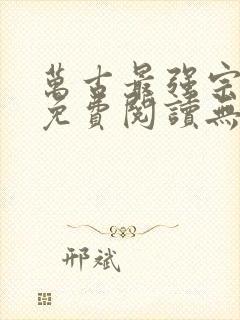 萬古最強宗
免費閱讀無
邢斌